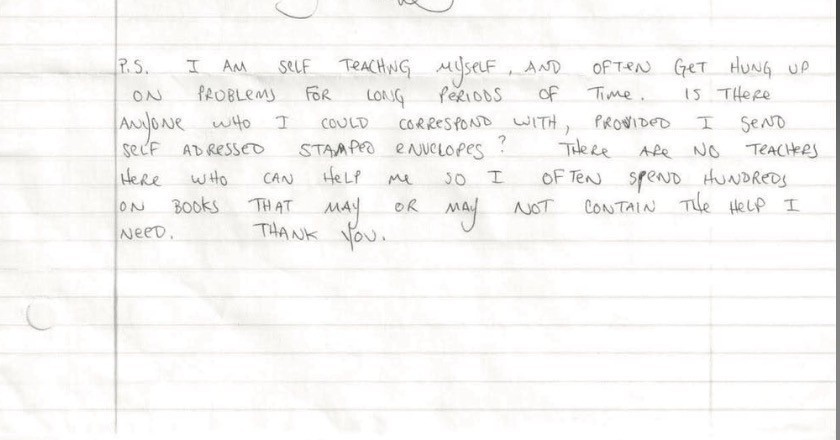 P.S. I AM SELF TEACHNG MYSELF, AND OFTEN GET HUNG UP
ON PROBLEMS FOR LONG PERIODS OF TIME. IS THERE
ANYONE WHO I COULD CORRESPOND WITH, PROVIDED I SEND
SELF ADRESSED STAMPED ENVELOPES? THERE ARE NO TEACHERS
HERE WHO CAN HELP ME SO I OFTEN SPEND HUNDREDS
ON BOOKS THAT MAY OR MAY NOT CONTAIN THE HELP I
NEED. THANK YOU.